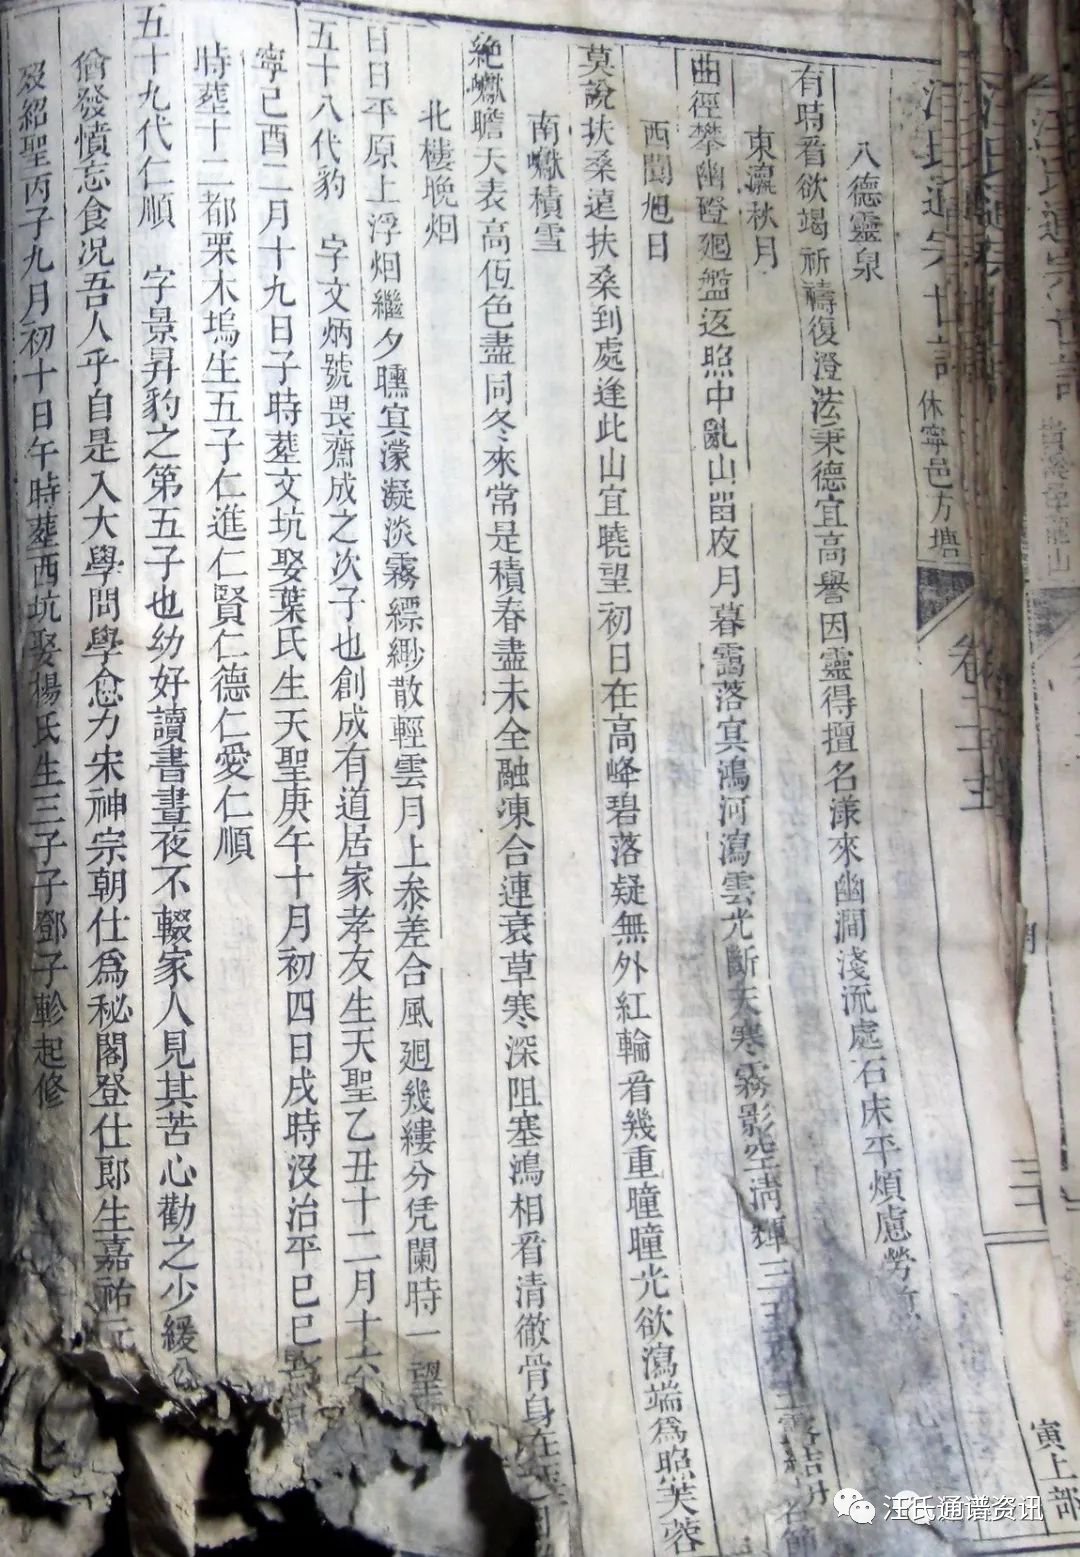 汪氏通宗世譜
休寧邑方塘
寅上部
八德靈泉
有時看欲竭祈禱復澄泫秉德宜高譽因靈得擅名漾來幽澗淺流處石床平煩慮勞
東瀛秋月
曲徑攀幽磴廻盤返照中亂山留夜月暮靄落冥鴻河瀉雲光斷天寒霧影空清輝三五
西閣旭日
莫說扶桑遠扶桑到處逢此山宜曉望初日在高峰碧落疑無外紅輪看幾重曈曈光欲瀉端為照芙蓉
南巘積雪
絶巘瞻天表高低色盡同冬來常是積春盡未全融凍合連衰草寒深阻塞鴻相看清徹骨身在
北樓晚烟
日日平原上浮烟繼夕曛冥濛凝淡霧縹緲散輕雲月上參差合風廻幾縷分凭闌時一望
五十八代豹 字文炳號畏齋成之次子也創成有道居家孝友生天聖乙丑十二月十六
寧己酉二月十九日子時葬文坑娶葉氏生天聖庚午十月初四日戌時沒治平巳巳
時葬十二都栗木塢生五子仁進仁賢仁德仁愛仁順
五十九代仁順 字景昇豹之第五子也幼好讀書晝夜不輟家人見其苦心勸之少緩公
偹發憤忘食况吾人乎自是入大學問學愈力宋神宗朝仕為秘閣登仕郎生嘉祐
歿紹聖丙子九月初十日午時葬西坑娶楊氏生三子子鄧子軫起修
汪氏通谱资讯